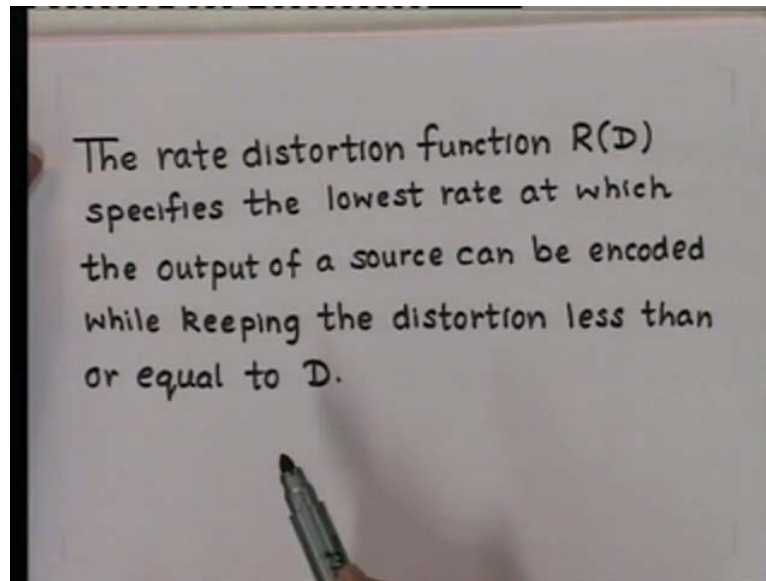 The rate distortion function R(D)
specifies the lowest rate at which
the output of a source can be encoded
while keeping the distortion less than
or equal to D.